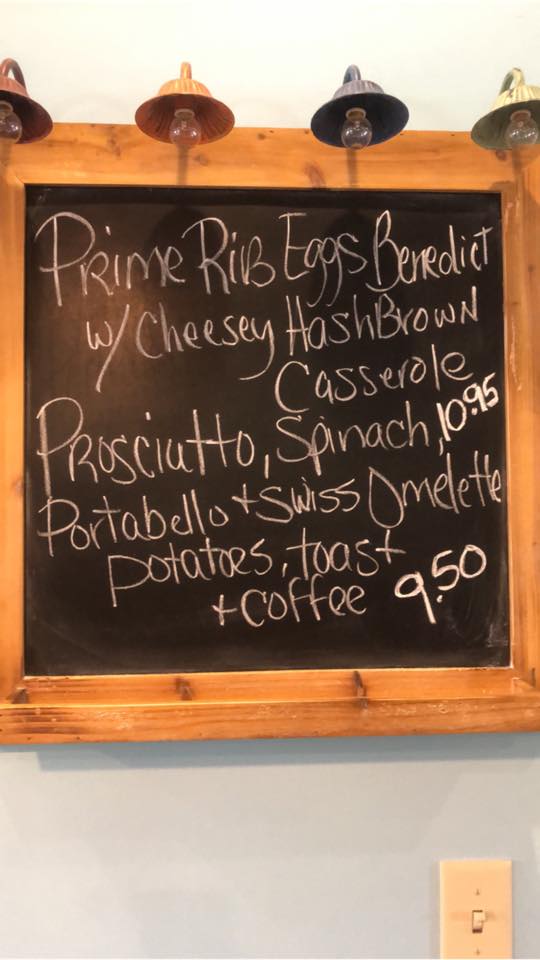 Prime Rib Eggs Benedict
w/ Cheesey HashBrown
Casserole
10.95
Prosciutto, Spinach,
Portabello + Swiss Omelette
potatoes, toast
+ coffee 9.50